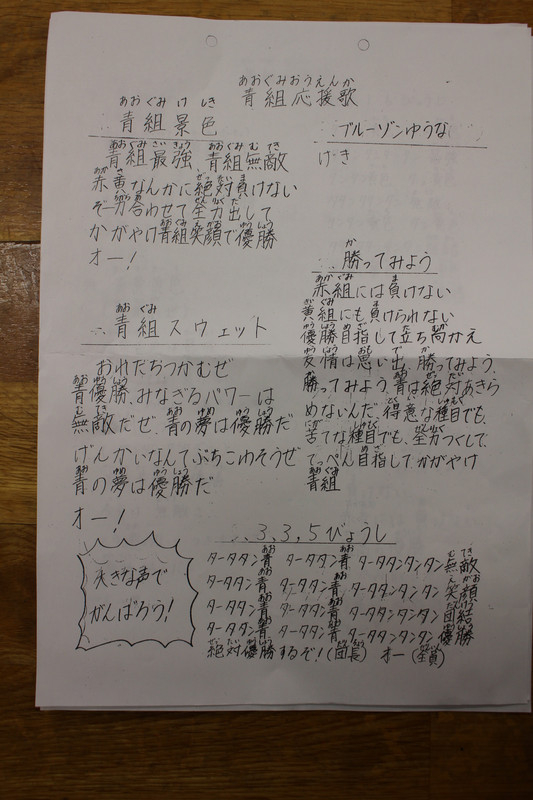 青組応援歌
青組景色
青組最強、青組無敵
赤黄なんかに絶対負けない
力合わせて全力出して
かがやけ青組笑顔で優勝
オー!
∴青組スウェット
おれだちつかむぜ
青優勝、みなぎるパワーは
無敵だぜ、青の夢は優勝だ
げんかいなんてぶちこわそうぜ
青の夢は優勝だ
オー!
ブルーゾンゆうな
げき
∴勝ってみよう
赤組には負けない
黄組にも負けられない
優勝目指して立ち向かえ
友情は思い出、勝ってみよう、
勝ってみよう、青は絶対あきら
めないんだ、得意な種目でも、
苦てな種目でも、全力つくして、
てっぺん目指してかがやけ
青組
∴3,3,5びょうし
タータタン青 タータタン青 タータタンタンタン無敵
タータタン青 タータタン青 タータタンタンタン笑顔
タータタン青 タータタン青 タータタンタンタン団結
タータタン青 タータタン青 タータタンタンタン優勝
絶対優勝するぞ!(団長) オー(全員)
大きな声で
がんばろう!